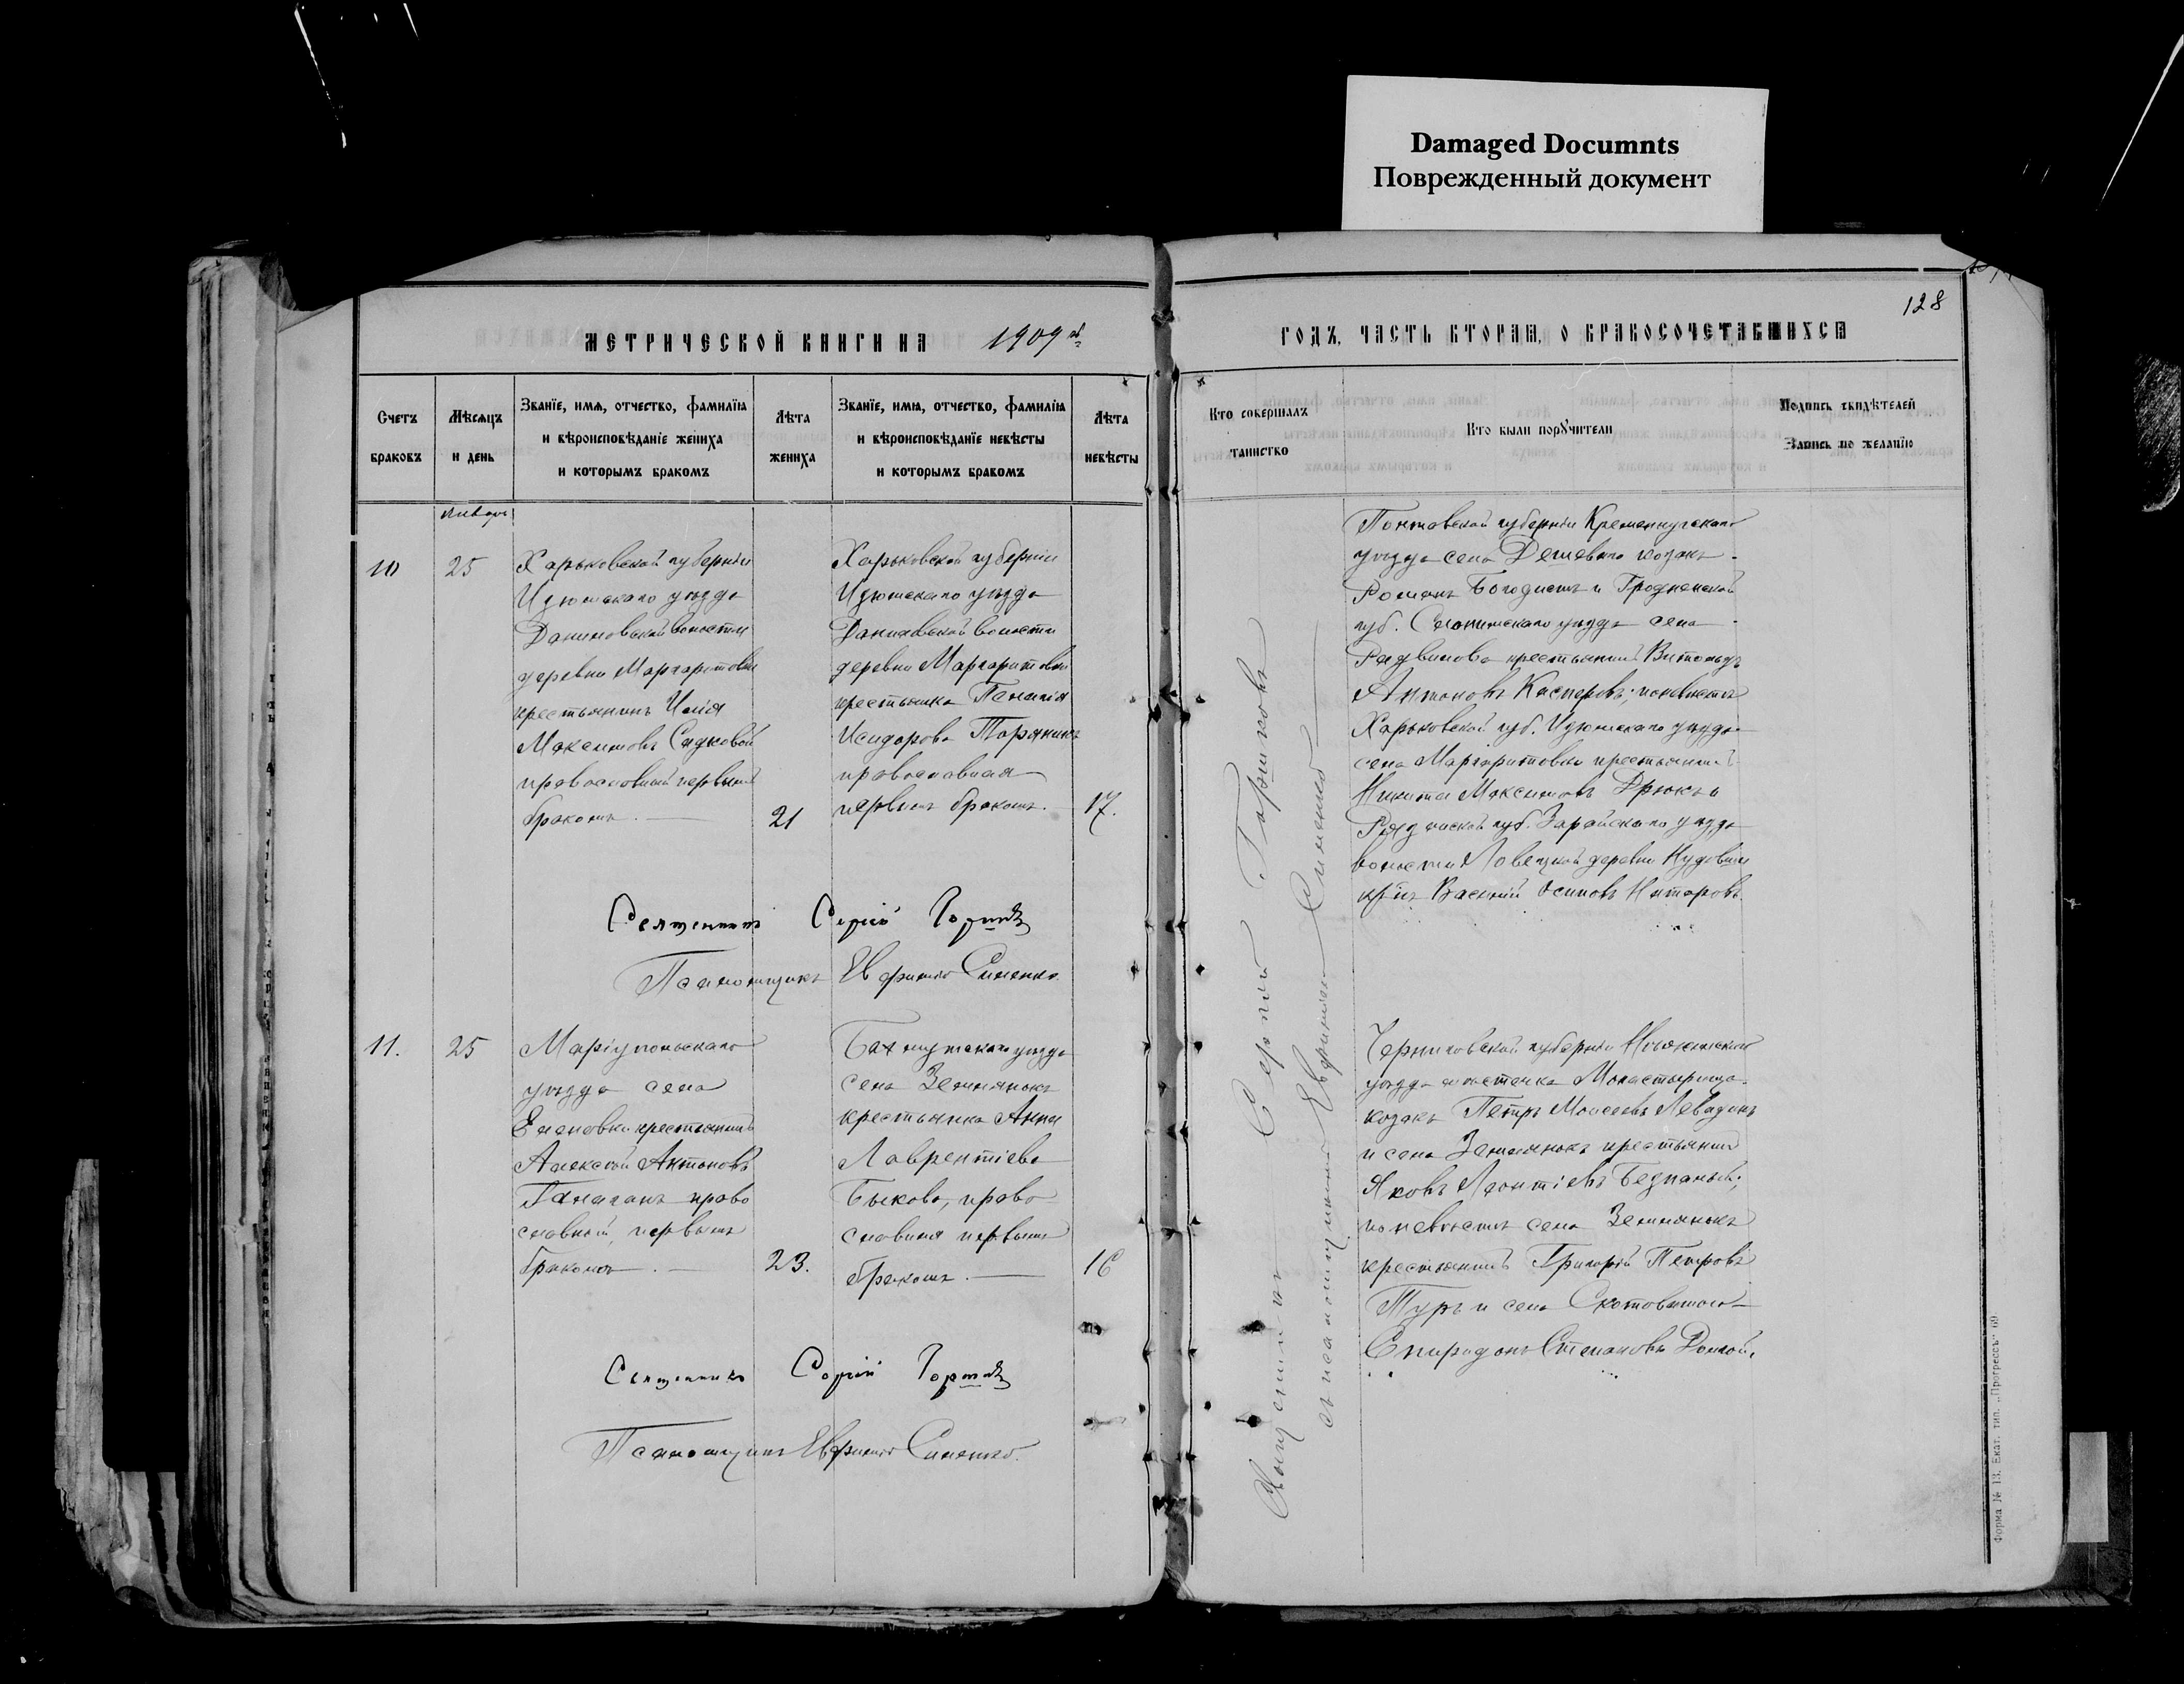 Damaged Documnts
Поврежденный документ
128
МЕТРИЧЕСКОЙ КНИГИ НА 1909й
ГОДЪ, ЧАСТЬ ВТОРАЯ, О БРАКОСОЧЕТАВШИХСЯ
Счетъ
браковъ
Мѣсяцъ
и день
Званіе, имя, отчество, фамилія
и вѣроисповѣданіе жениха
и которымъ бракомъ
Лѣта
жениха
Званіе, имя, отчество, фамилія
и вѣроисповѣданіе невѣсты
и которымъ бракомъ
Лѣта
невѣсты
Кто совершалъ
таинство
Кто были поручители
Подпись свидѣтелей
Запись по желанію
Январь
10
25
Харьковской губерніи
Изюмскаго уѣзда
Даниловской волости
деревни Маргаритовки
крестьянинъ Илія
Максимовъ Садковой
православный первымъ
бракомъ.
21
Харьковской губерніи
Изюмскаго уѣзда
Даниловской волости
деревни Маргаритовки
крестьянка Пелагія
Исидорова
православная
первымъ бракомъ.
17.
Полтавской губерніи Кременчугскаго
уѣзда села козакъ
Романъ и Гродненской
губ. Слонимскаго уѣзда села
крестьянинъ Витольдъ
Антоновъ Касперовъ; по невѣстѣ
Харьковской губ. Изюмскаго уѣзда
села Маргаритовки крестьянинъ
Никита Максимовъ Дрюкъ и
Рязанской губ. Зарайскаго уѣзда
волости Ловецкой деревни
кр-нъ Василій Осиповъ
Священникъ Сергій
Псаломщикъ Евфимій Синенко.
11.
25
Маріупольскаго
уѣзда села
Еленовки крестьянинъ
Алексѣй Антоновъ
Галаганъ право
славный, первымъ
бракомъ.
23.
Бахмутскаго уѣзда
села Землянокъ
крестьянка Анна
Лаврентіева
Быкова, право
славная первымъ
бракомъ.
16
Черниговской губерніи Нѣжинскаго
уѣзда мѣстечка Монастырища
козакъ Петръ Моисеевъ Левадинъ
и села Землянокъ крестьянинъ
Яковъ Леонтіевъ
по невѣстѣ села Землянокъ
крестьянинъ Григорій Петровъ
Туръ и села Скотоватаго
Спиридонъ Степановъ Долгой.
Священникъ Сергій
Псаломщикъ Евфимій Синенко.
Священникъ Сергій
съ псаломщикомъ Евфиміемъ Синенко
Форма № 13. Екат. тип. „Прогрессъ“ 69